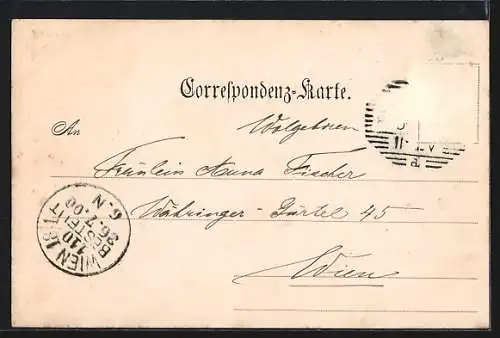 Correspondenz-Karte.
An
Wolgeboren
Fräulein Anna Fischer
Währinger-Gürtel 45
Wien
WIEN 18/1
110
BESTELLT
26.7.00
6.N